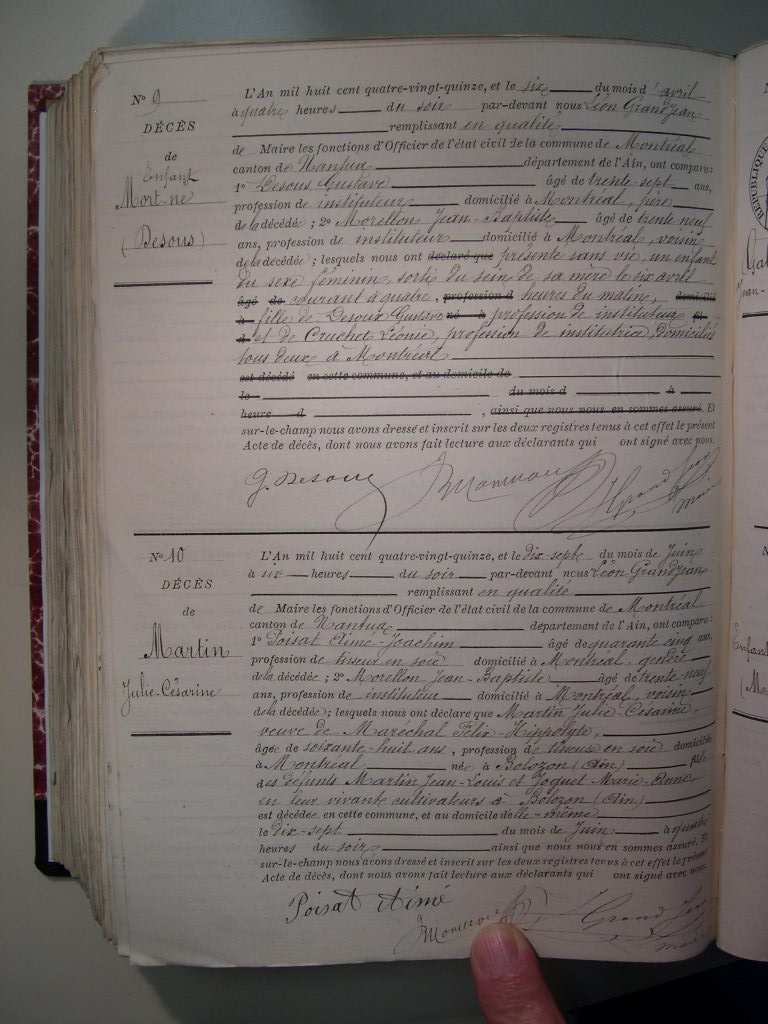 No 9
DÉCÈS
de
Enfant
Mort-né
(Desous)
L'An mil huit cent quatre-vingt-quinze, et le six du mois d'avril
à quatre heures du soir par-devant nous Léon Grandjean
remplissant en qualité
de Maire les fonctions d'Officier de l'état civil de la commune de Montréal
canton de Nantua département de l'Ain, ont comparu:
1º Desous Gustave âgé de trente sept ans,
profession de instituteur domicilié à Montréal, père
de la décédée; 2º Morellon Jean-Baptiste âgé de trente neuf
ans, profession de instituteur domicilié à Montréal, voisin
de la décédée; lesquels nous ont déclaré que présenté sans vie, un enfant
du sexe féminin, sorti du sein de sa mère le six avril
âgé de courant à quatre, profession d heures du matin, domicilié
à fille de Desous Gustave né à profession de instituteur
à et de Cruchet Léonie, profession de institutrice, Domiciliés
tous deux à Montréal
est décédé en cette commune, et au domicile de
le du mois d à
heure d , ainsi que nous nous en sommes assuré. Et
sur-le-champ nous avons dressé et inscrit sur les deux registres tenus à cet effet le présent
Acte de décès, dont nous avons fait lecture aux déclarants qui ont signé avec nous.
G. Desous Grand Jean
maire
No 10
DÉCÈS
de
Martin
Julie-Césarine
L'An mil huit cent quatre-vingt-quinze, et le dix sept du mois de Juin
à six heures du soir par-devant nous Léon Grandjean
remplissant en qualité
de Maire les fonctions d'Officier de l'état civil de la commune de Montréal
canton de Nantua département de l'Ain, ont comparu:
1º Poisat Aimé-Joachim âgé de quarante cinq ans,
profession de tisseur en soie domicilié à Montréal, gendre
de la décédée; 2º Morellon Jean-Baptiste âgé de trente neuf
ans, profession de instituteur domicilié à Montréal, voisin
de la décédée; lesquels nous ont déclaré que Martin Julie-Césarine
veuve de Maréchal Félix-Hippolyte,
âgée de soixante-huit ans, profession de tisseuse en soie domiciliée
à Montréal née à Bolozon (Ain) fille
des défunts Martin Jean-Louis et Joguet Marie-Anne
en leur vivant cultivateurs à Bolozon (Ain)
est décédée en cette commune, et au domicile de elle-même
le dix-sept du mois de Juin à quatre
heures du soir ainsi que nous nous en sommes assuré. Et
sur-le-champ nous avons dressé et inscrit sur les deux registres tenus à cet effet le présent
Acte de décès, dont nous avons fait lecture aux déclarants qui ont signé avec nous.
Poisat Aimé
Grand Jean
maire